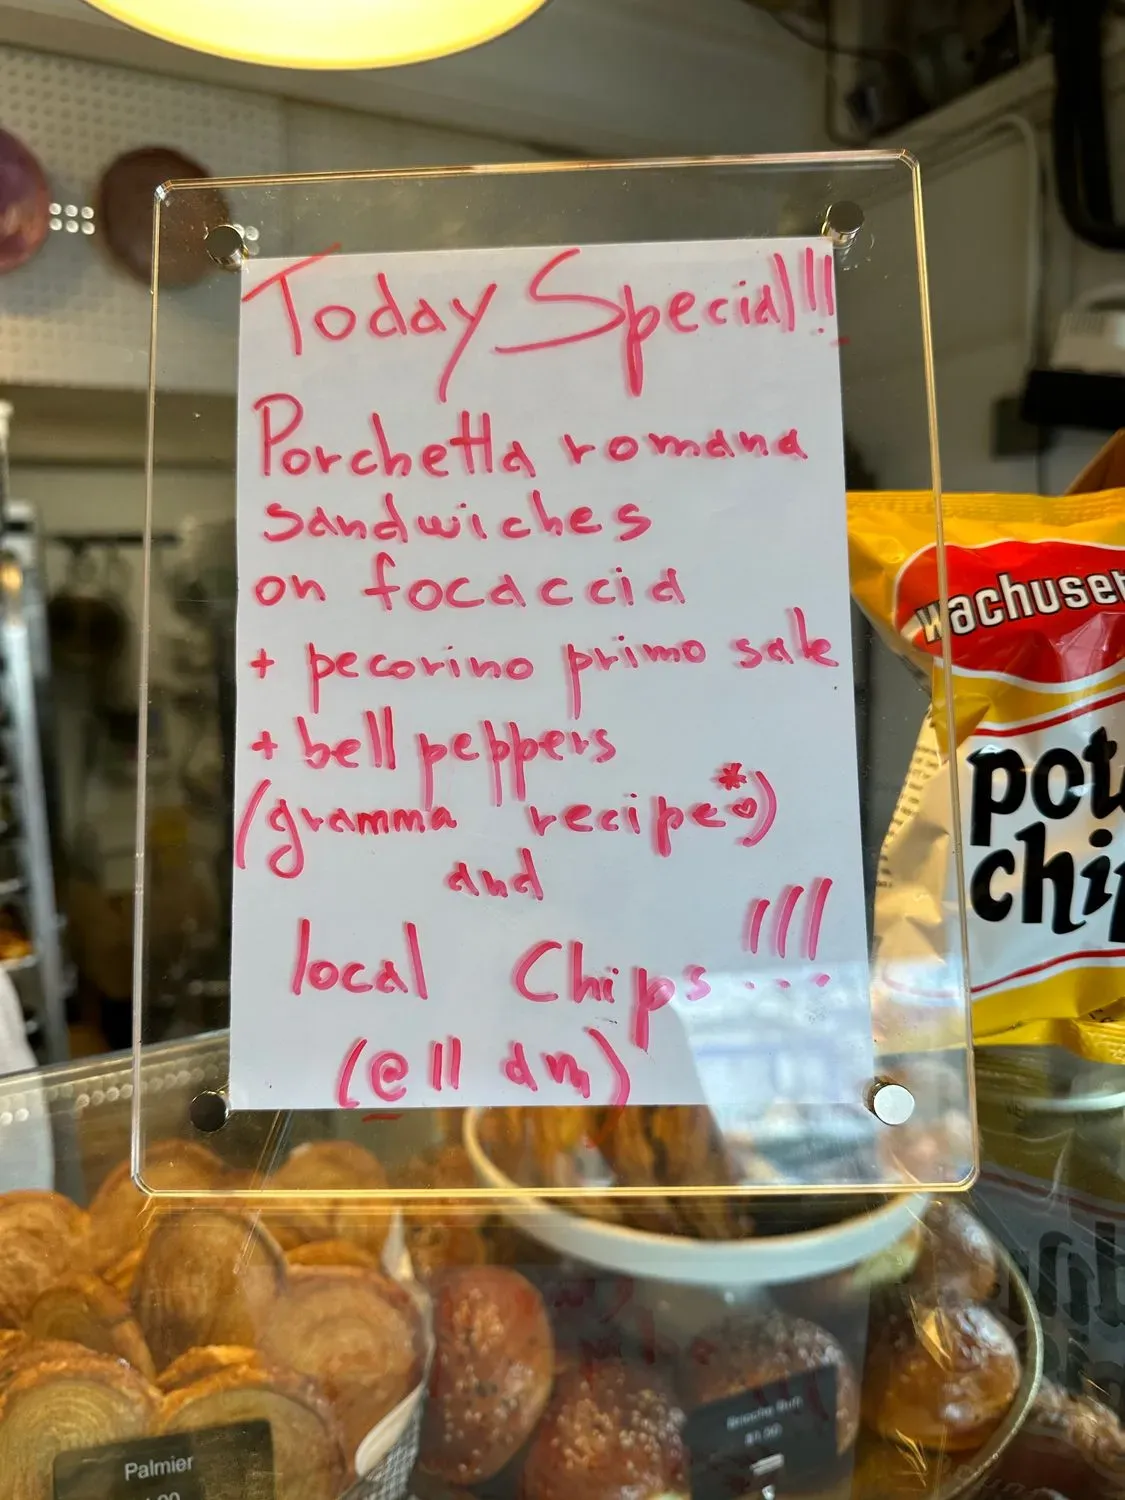 Today Special!!!
Porchetta romana
sandwiches
on focaccia
+ pecorino primo sale
+ bell peppers
(gramma recipe*)
and
local Chips !!!
(@ 11 am)
wachuset
pot
chip
Palmier
Brioche Bun
$1.50